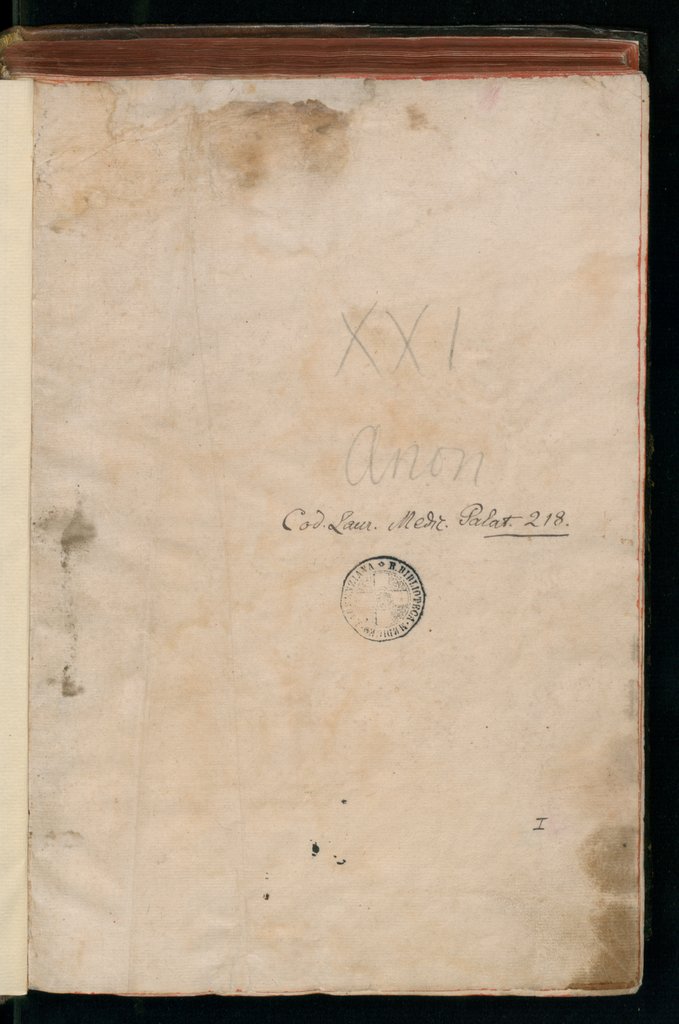 XXI
Anon
Cod. Laur. Medic. Palat. 218.
R. BIBLIOTECA MEDICEO LAURENZIANA
I